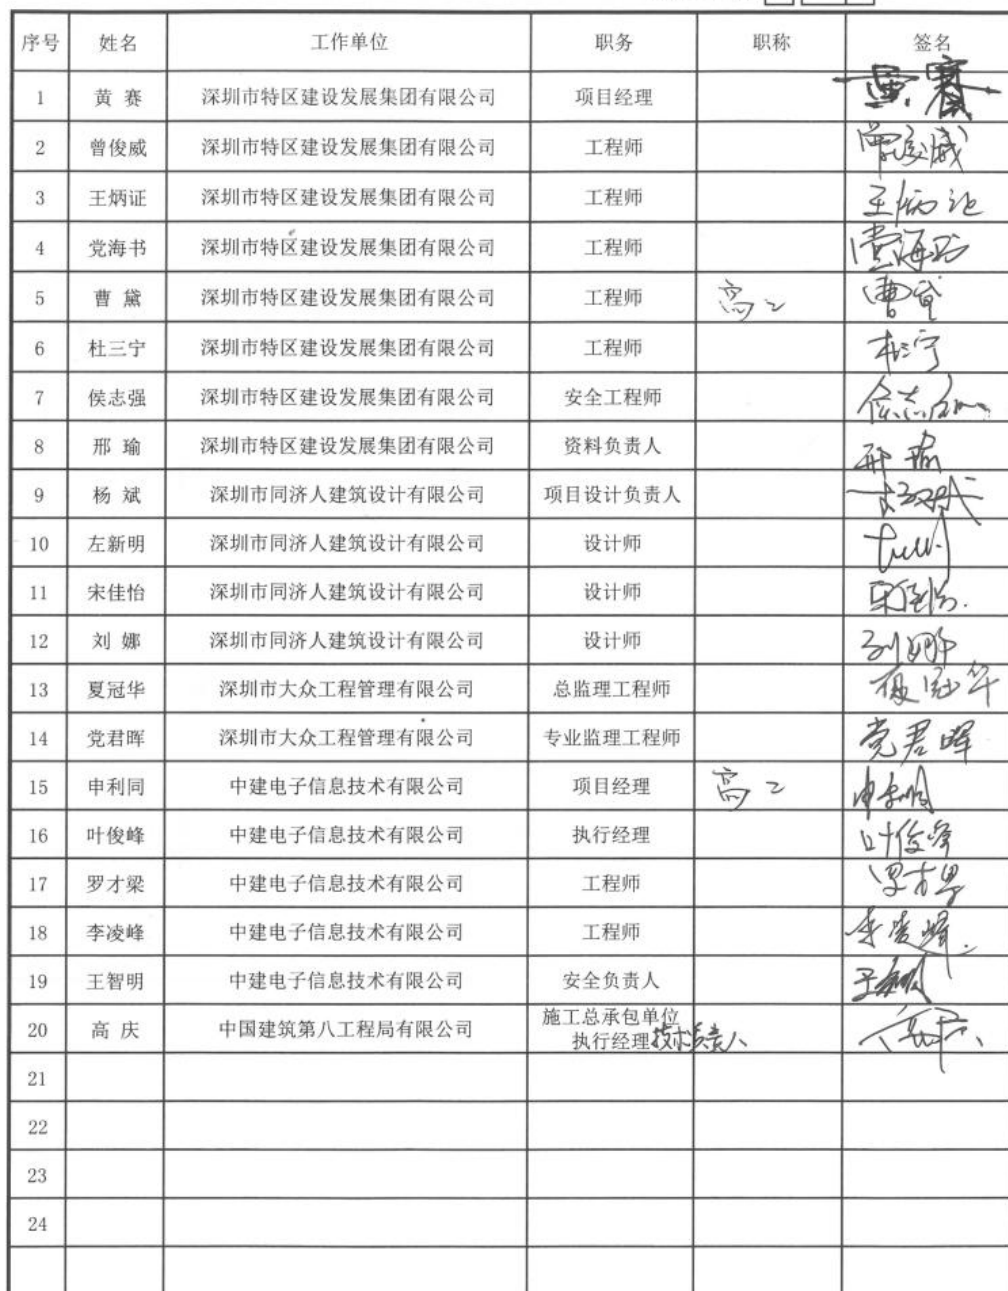 序号 姓名 工作单位 职务 职称 签名
1 黄 赛 深圳市特区建设发展集团有限公司 项目经理 黄赛
2 曾俊威 深圳市特区建设发展集团有限公司 工程师 曾俊威
3 王炳证 深圳市特区建设发展集团有限公司 工程师 王炳证
4 党海书 深圳市特区建设发展集团有限公司 工程师 党海书
5 曹 黛 深圳市特区建设发展集团有限公司 工程师 高工 曹黛
6 杜三宁 深圳市特区建设发展集团有限公司 工程师 杜三宁
7 侯志强 深圳市特区建设发展集团有限公司 安全工程师 侯志强
8 邢 瑜 深圳市特区建设发展集团有限公司 资料负责人 邢瑜
9 杨 斌 深圳市同济人建筑设计有限公司 项目设计负责人
10 左新明 深圳市同济人建筑设计有限公司 设计师
11 宋佳怡 深圳市同济人建筑设计有限公司 设计师 宋佳怡
12 刘 娜 深圳市同济人建筑设计有限公司 设计师 刘娜
13 夏冠华 深圳市大众工程管理有限公司 总监理工程师 夏冠华
14 党君晖 深圳市大众工程管理有限公司 专业监理工程师 党君晖
15 申利同 中建电子信息技术有限公司 项目经理 高工 申利同
16 叶俊峰 中建电子信息技术有限公司 执行经理 叶俊峰
17 罗才梁 中建电子信息技术有限公司 工程师 罗才梁
18 李凌峰 中建电子信息技术有限公司 工程师 李凌峰
19 王智明 中建电子信息技术有限公司 安全负责人 王智明
20 高 庆 中国建筑第八工程局有限公司 施工总承包单位
执行经理 技术负责人
21
22
23
24